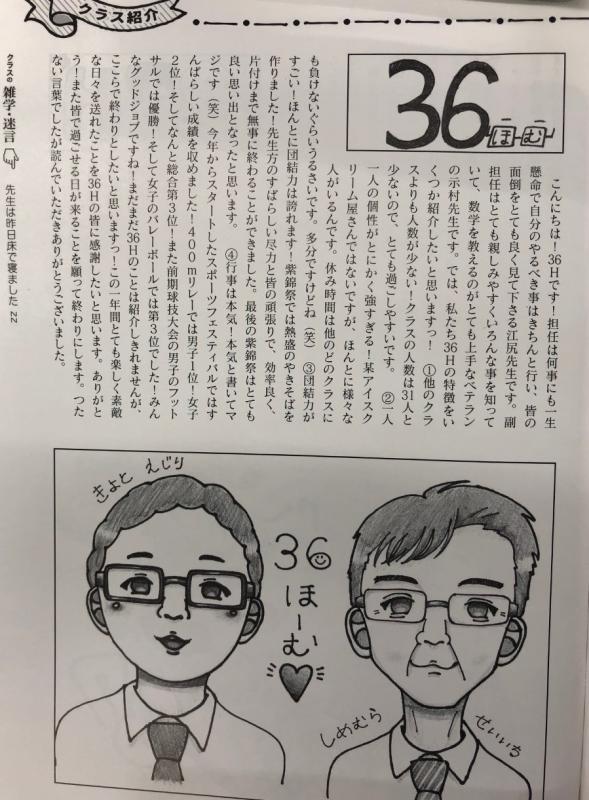 クラス紹介
36ほーむ
こんにちは！36Hです！担任は何事にも一生
懸命で自分のやるべき事はきちんと行い、皆の
面倒をとても良く見て下さる江尻先生です。副
担任はとても親しみやすくいろんな事を知って
いて、数学を教えるのがとても上手なベテラン
の示村先生です。では、私たち36Hの特徴をい
くつか紹介したいと思いますっ！　①他のクラ
スよりも人数が少ない！クラスの人数は31人と
少ないので、とても過ごしやすいです。　②一人
一人の個性がとにかく強すぎる！某アイスク
リーム屋さんではないですが、ほんとに様々な
人がいるんです。休み時間は他のどのクラスに
も負けないぐらいうるさいです。多分ですけどね（笑）　③団結力が
すごい！ほんとに団結力は誇れます！紫錦祭では熱盛のやきそばを
作りました！先生方のすばらしい尽力と皆の頑張りで、効率良く、
片付けまで無事に終わることができました。最後の紫錦祭はとても
良い思い出となったと思います。　④行事は本気！本気と書いてマ
ジです（笑）今年からスタートしたスポーツフェスティバルではす
んばらしい成績を収めました！400mリレーでは男子1位！女子
2位！そしてなんと総合第3位！また前期球技大会の男子のフット
サルでは優勝！そして女子のバレーボールでは第3位でした！みん
なグッドジョブですね！まだまだ36Hのことは紹介しきれませんが、
ここらで終わりとしたいと思いますっ！この一年間とても楽しく素敵
な日々を送れたことを36Hの皆に感謝したいと思います。ありがと
う！また皆で過ごせる日が来ることを願って終わりにします。つた
ない言葉でしたが読んでいただきありがとうございました。
クラスの雑学・迷言
先生は昨日床で寝ました zz
きよと えじり
36
ほーむ
しめむら
せいいち